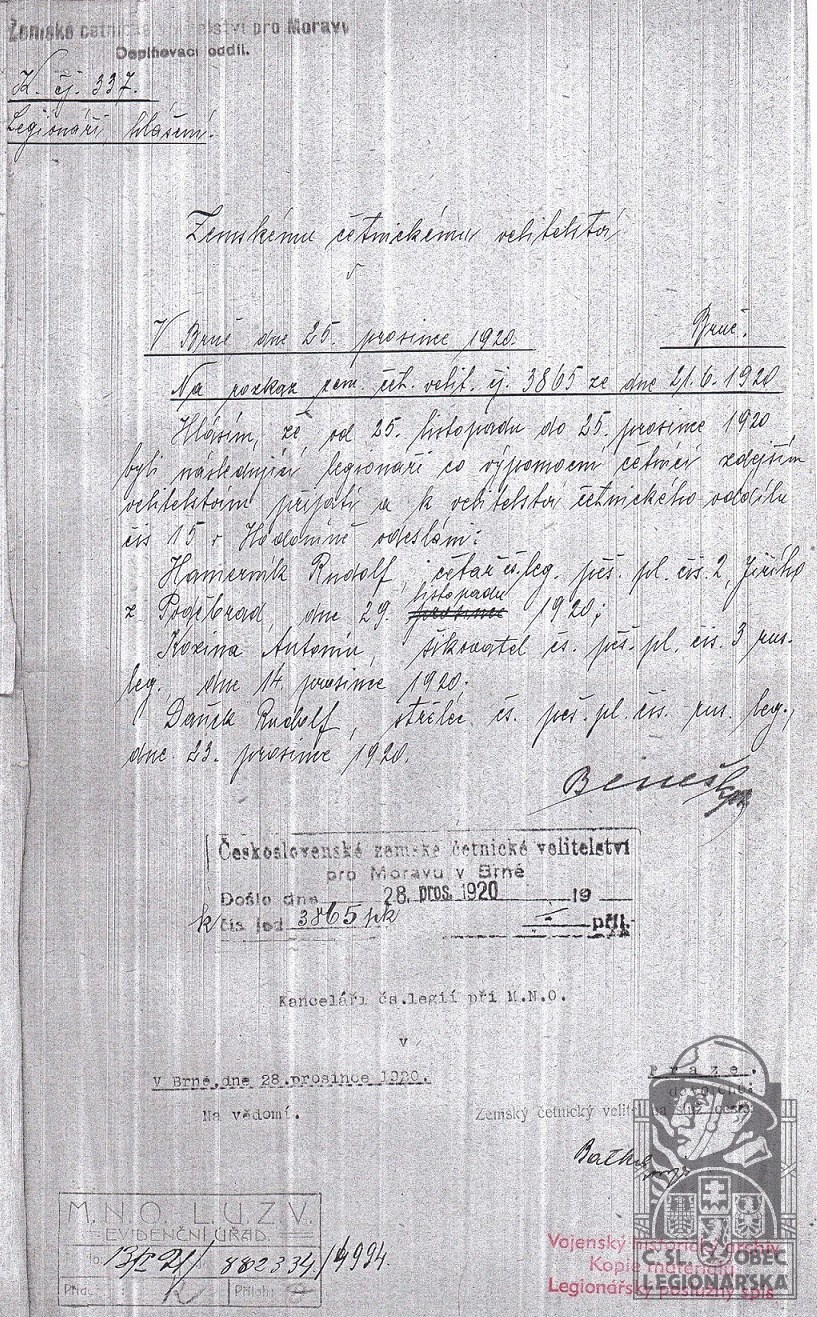 Zemské četnické velitelství pro Moravu
Doplňovací oddíl.
K. čj. 337.
Legionáři hlášení.
Zemskému četnickému velitelství
v
V Brně dne 25. prosince 1920.
Brně.
Na rozkaz zem. čet. velit. čj. 3865 ze dne 21.6. 1920
Hlásím, že od 25. listopadu do 25. prosince 1920
byli následující legionáři co výpomocní četníci zdejším
velitelstvím přijati a k velitelství četnického oddílu
čís 15 v Hodoníně odesláni:
Hamerník Rudolf, četař čs. leg. pěš. pl. čís. 2, Jiřího
z Poděbrad, dne 29. listopadu prosince 1920;
Kozina Antonín, šikovatel čs. pěš. pl. čís. 3 rus.
leg. dne 14. prosince 1920.
Daněk Rudolf, střelec čs. pěš. pl. čís. rus. leg.,
dne 23. prosince 1920.
Beneš
Československé zemské četnické velitelství
pro Moravu v Brně
Došlo dne 28. pros. 1920 19
k čís jed 3865 příl.
Kanceláři čs.legií při M.N.O.
v
Praze.
V Brně,dne 28.prosince 1920.
Na vědomí.
Zemský četnický velitel
M.N.O. L.U.Z.V.
EVIDENČNÍ ÚŘAD.
882334/4994.
Příloh:
Vojenský historický archiv
Kopie materiálu
Legionářský poslužný spis
Č. SL. OBEC
LEGIONÁŘSKÁ